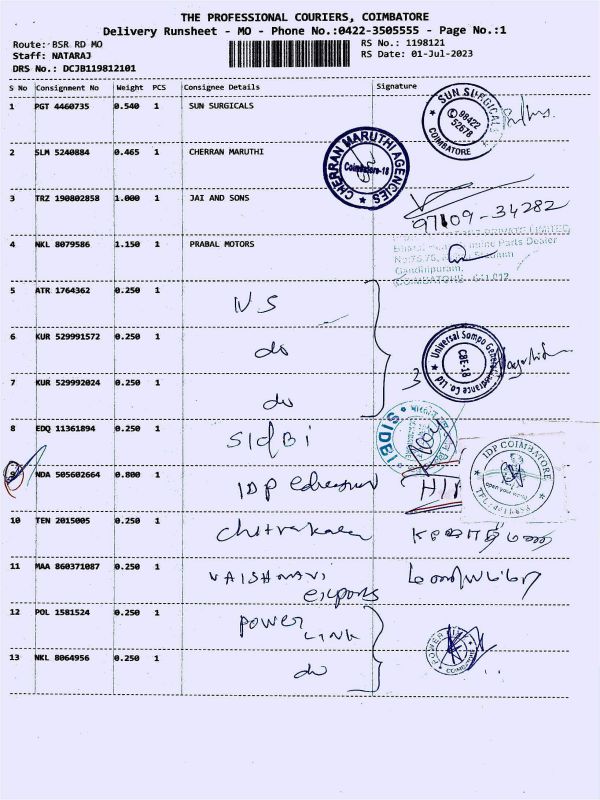 THE PROFESSIONAL COURIERS, COIMBATORE
Delivery Runsheet - MO - Phone No.:0422-3505555 - Page No.:1
Route: BSR RD MO
RS No.: 1198121
Staff: NATARAJ
RS Date: 01-Jul-2023
DRS No.: DCJB119812101
S No Consignment No Weight PCS Consignee Details Signature
1 PGT 4460735 0.540 1 SUN SURGICALS
SUN SURGICALS
98422
52678
COIMBATORE
2 SLM 5240884 0.465 1 CHERRAN MARUTHI
CHERRAN MARUTHI AGENCIES
Coimbatore-18
3 TRZ 190802858 1.000 1 JAI AND SONS
97109-34282
4 NKL 8079586 1.150 1 PRABAL MOTORS
Parts Dealer
Gandhipuram,
5 ATR 1764362 0.250 1 NS
6 KUR 529991572 0.250 1 do
7 KUR 529992024 0.250 1 do
3
Universal Sompo General Insurance Co. Ltd
CBE-18
8 EDQ 11361894 0.250 1 SIdBi
SIDBI
9 NDA 505602664 0.800 1 IDP Education
IDP COIMBATORE
open your world
10 TEN 2015005 0.250 1 Chitrakala
11 MAA 860371087 0.250 1 VAISHNAVI
exports
12 POL 1581524 0.250 1 POWER
LINK
13 NKL 8064956 0.250 1 do
COIMBATORE